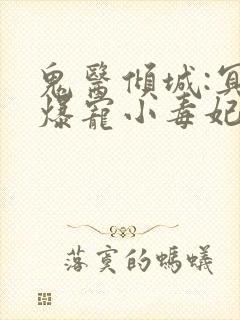 鬼醫傾城:冥
爆寵小毒妃
落寞的螞蟻